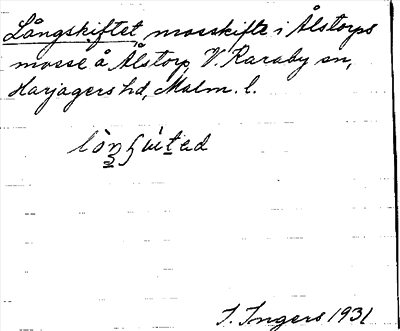 Långskiftet, mosskifte i Ålstorps
mosse å Ålstorp V. Karaby sn,
Harjagers hd, Malm. l.
I. Ingers 1931